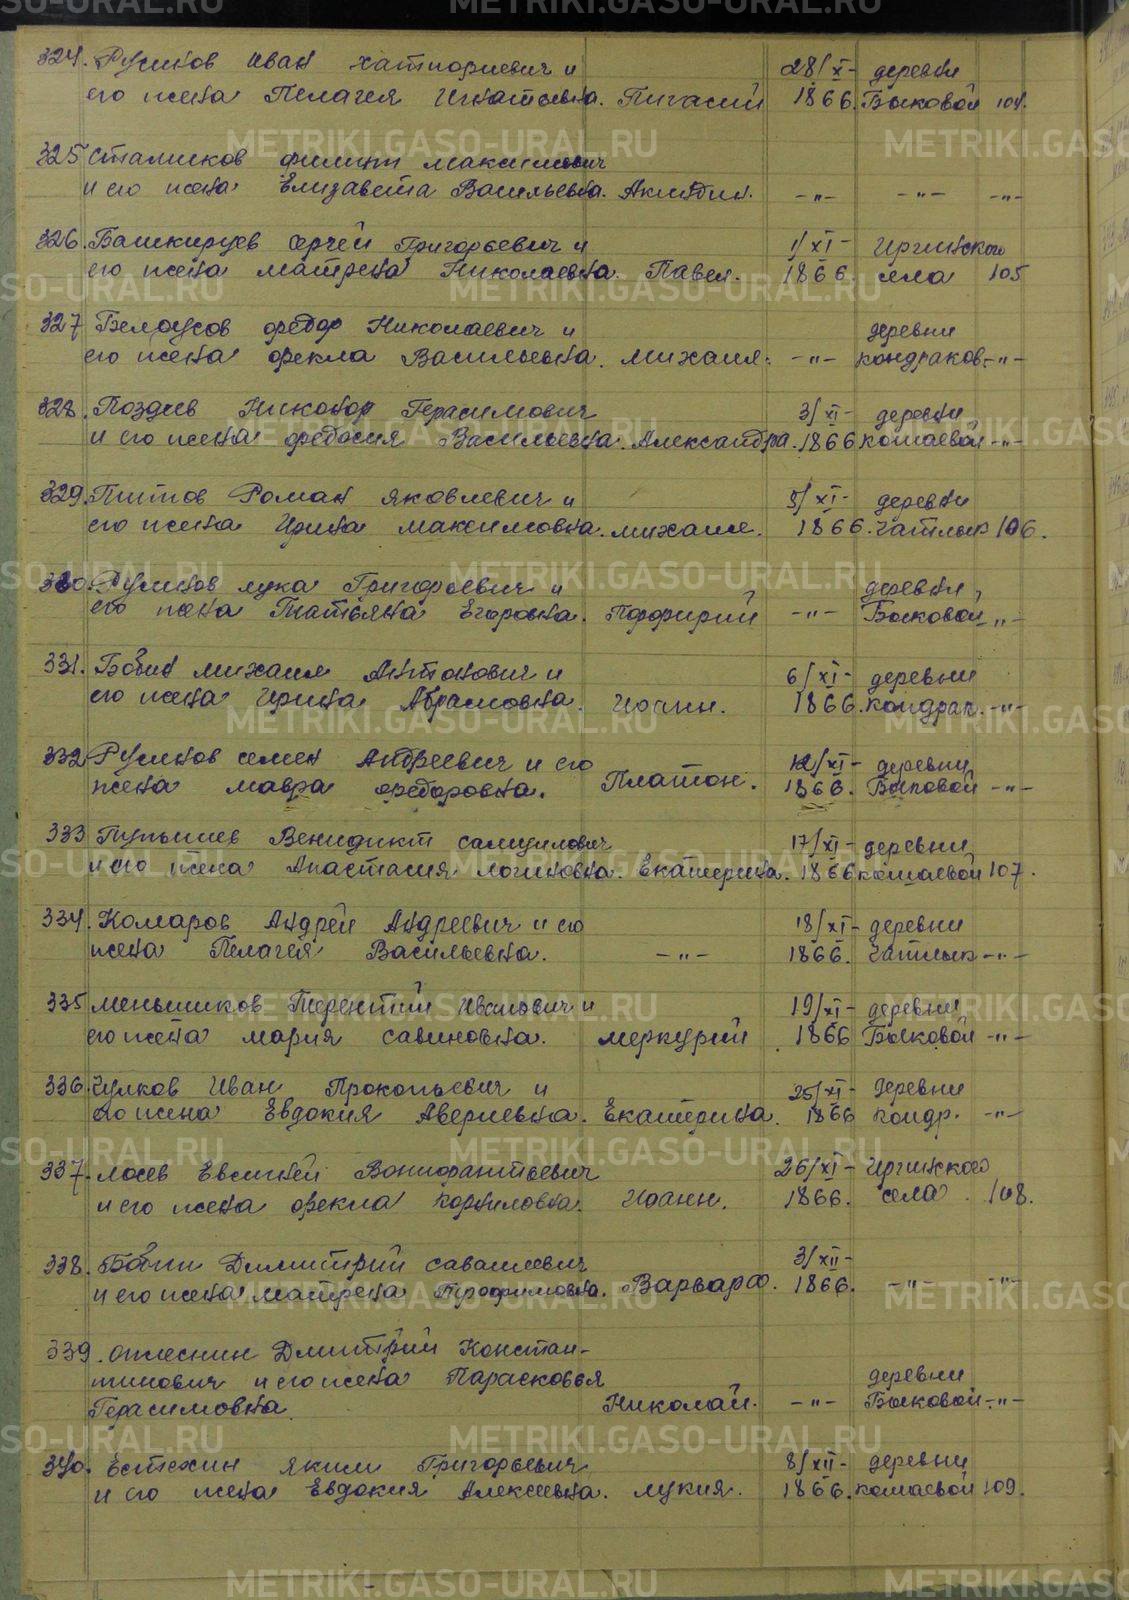 324. Русинов Иван и 28/XI- деревни
его жена Пелагея Игнатьевна. 1866. Быковой 104.
325 Стаханов Филипп Максимович
и его жена Елизавета Васильевна. Акиндин. -"- -"- -"-
326. Башкирцев Сергей Григорьевич и 1/XI- Иргинского
его жена Матрена Николаевна. Павел. 1866. села 105
327 Белоусов Федор Николаевич и деревни
его жена Фекла Васильевна. Михаил. -"- Кондраков. -"-
328. Поздеев Никонор Герасимович 3/XI- деревни
и его жена Федосия Васильевна. Александра. 1866 Кошаевой -"-
329. Титов Роман Яковлевич и 5/XI- деревни
его жена Ирина Максимовна. Михаил. 1866. Чатлык 106.
330. Русинов Лука Григорьевич и деревни
его жена Татьяна Егоровна. Порфирий -"- Быковой -"-
331. Бабин Михаил Антонович и 6/XI- деревни
его жена Ирина Абрамовна. Иоанн. 1866. Кондрат. -"-
332 Русинов Семен Андреевич и его 12/XI- деревни
жена Мавра Федоровна. Платон. 1866. Быковой -"-
333 Венидикт Самуилович 17/XI- деревни
и его жена Анастасия Логиновна. Екатерина. 1866 Кошаевой 107.
334. Комаров Андрей Андреевич и его 18/XI- деревни
жена Пелагея Васильевна. -"- 1866. Чатлык -"-
335 Меньшиков Терентий Иванович и 19/XI- деревни
его жена Мария Савиновна. Меркурий 1866 Быковой -"-
336. Чулков Иван Прокопьевич и 25/XI- деревни
его жена Евдокия Аверпевна. Екатерина. 1866 Кондр. -"-
337. Лосев Евсигней Вонифантьевич 26/XI- Иргинского
и его жена Фекла Корниловна. Иоанн. 1866. села. 108.
338. Бабин Димитрий Савватеевич 3/XII-
и его жена Матрена Трофимовна. Варвара. 1866. -"- -"-
339. Дмитрий Констан-
тинович и его жена Парасковья деревни
Герасимовна. Николай. -"- Быковой -"-
340. Естехин Яким Григорьевич 8/XII- деревни
и его жена Евдокия Алексеевна. Лукия. 1866. Кошаевой 109.
METRIKI.GASO-URAL.RU